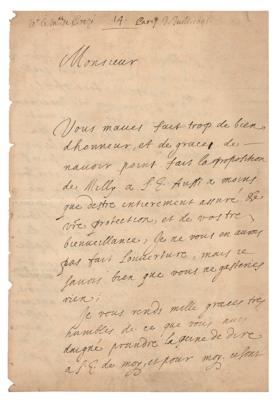 14.
Monsieur
Vous maues fait trop de bien
dhonneur, et de graces de
nauoir point fait la proposition
de Milly a S. E. a moins
que destre entierement assuré de
vre protection, et de vostre
bienueillance, Je ne vous en auois
pas fait Louuerture, mais ie
sauois bien que vous ne gasteriés
rien;
Je vous rends mille graces tres
humbles de ce que vous aues
daigné prendre la peine de dire
a S. E. de moy, et pour moy, ce sont